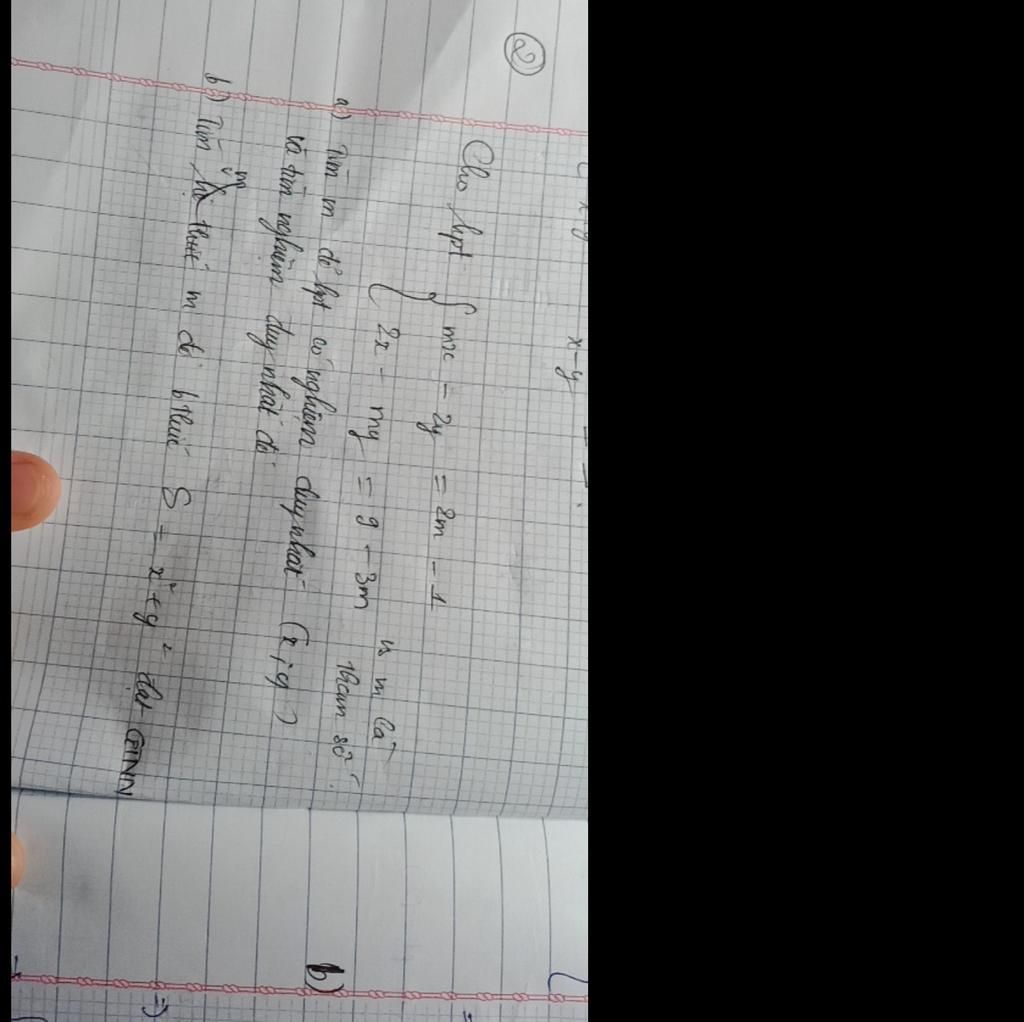 x + y
x - y
②
Cho hpt { mx - 2y = 2m - 1
2x - my = 9 - 3m
m là
tham số.
a) Tìm m để hpt có nghiệm duy nhất (x; y)
và tìm nghiệm duy nhất đó
m
b) Tìm thức m để bthức S = x² + y² đạt GTNN
b)
=)